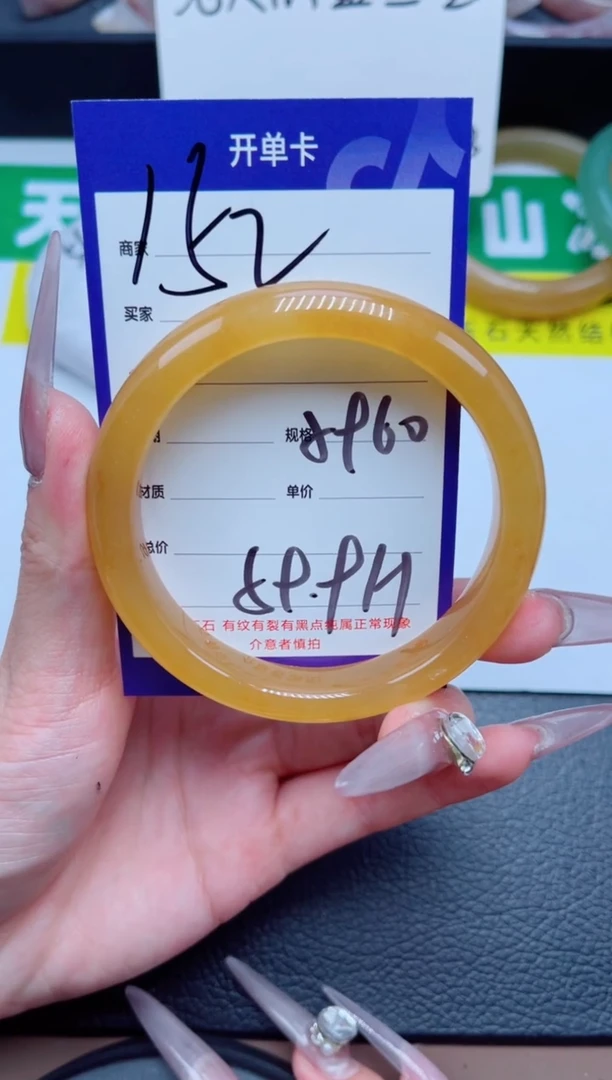 开单卡
152
商家
买家
规格
5960
材质
单价
总价
59.9H
石 有纹有裂有黑点纯属正常现象
介意者慎拍
天
山
石天然结